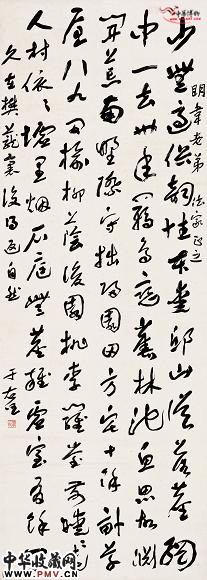 明韋老弟 法家正之
少無適俗韻性本愛邱山誤落塵網
中一去卅年羈鳥戀舊林池魚思故淵
開荒南野際守拙歸園田方宅十餘畝草
屋八九間榆柳蔭後園桃李羅堂前曖〻遠
人村依〻墟里煙戶庭無塵雜虛室有餘閒
久在樊籠裏復得返自然 于右任
中华博物
中华收藏网
WWW.PMV.CN